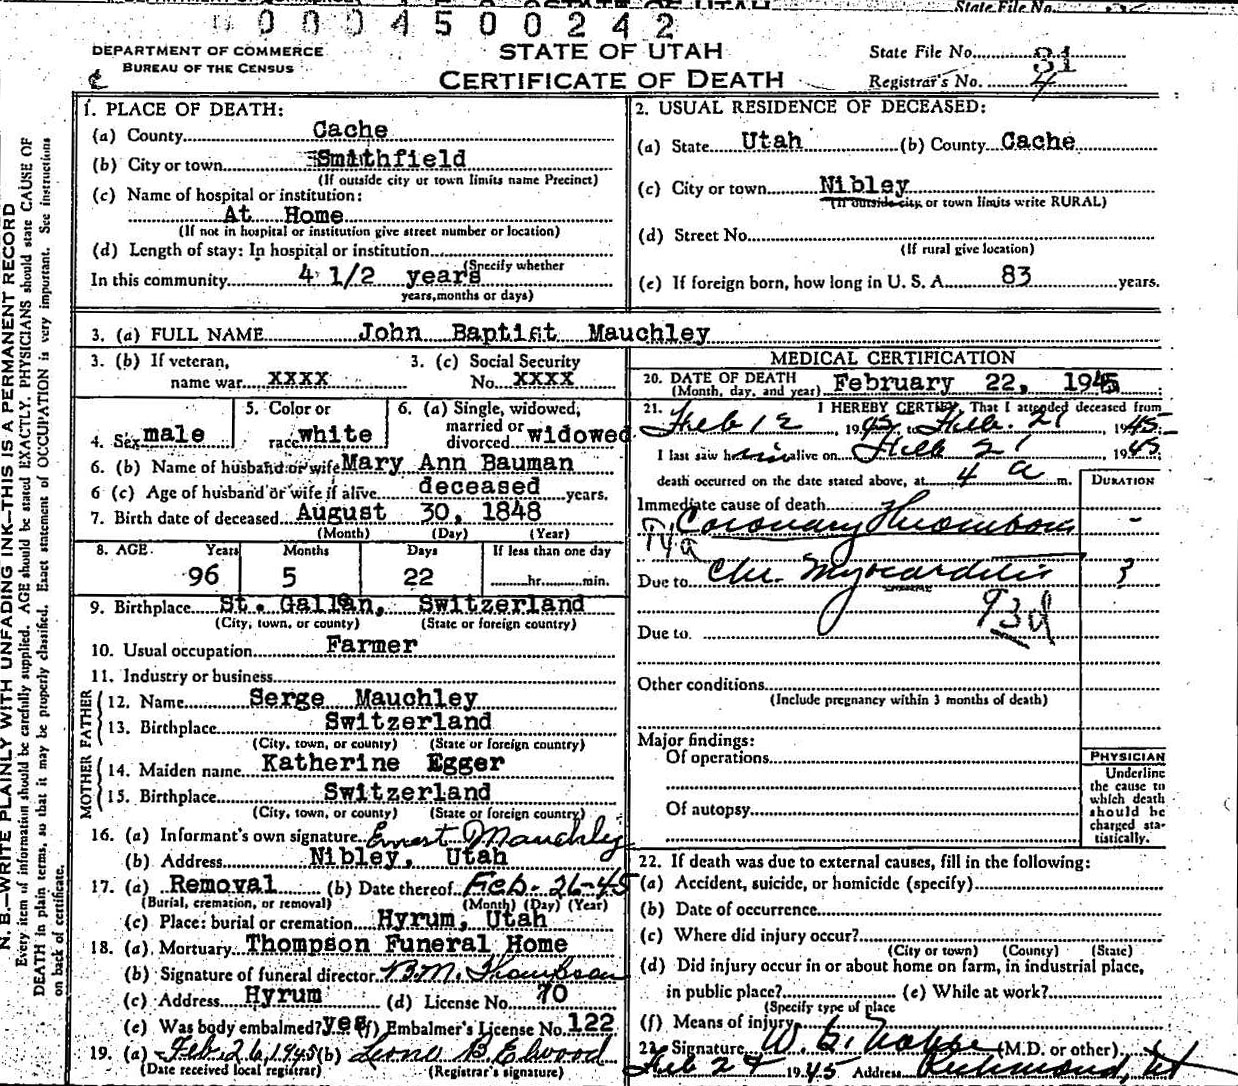 STATE OF UTAH
State File No.
0004500242
DEPARTMENT OF COMMERCE
BUREAU OF THE CENSUS
STATE OF UTAH
CERTIFICATE OF DEATH
State File No. 81
Registrar's No. 4
N. B.—WRITE PLAINLY WITH UNFADING INK—THIS IS A PERMANENT RECORD
Every item of information should be carefully supplied. AGE should be stated EXACTLY. PHYSICIANS should state CAUSE OF
DEATH in plain terms, so that it may be properly classified. Exact statement of OCCUPATION is very important. See instructions
on back of certificate.
1. PLACE OF DEATH:
(a) County Cache
(b) City or town Smithfield
(If outside city or town limits name Precinct)
(c) Name of hospital or institution:
At Home
(If not in hospital or institution give street number or location)
(d) Length of stay: In hospital or institution
(Specify whether
In this community 4 1/2 years
years, months or days)
2. USUAL RESIDENCE OF DECEASED:
(a) State Utah (b) County Cache
(c) City or town Nibley
(If outside city or town limits write RURAL)
(d) Street No.
(If rural give location)
(e) If foreign born, how long in U. S. A. 83 years.
3. (a) FULL NAME John Baptist Mauchley
3. (b) If veteran, 3. (c) Social Security
name war XXXX No. XXXX
4. Sex male 5. Color or race white 6. (a) Single, widowed, married or divorced widowed
6. (b) Name of husband or wife Mary Ann Bauman
6 (c) Age of husband or wife if alive deceased years.
7. Birth date of deceased August 30, 1848
(Month) (Day) (Year)
8. AGE Years Months Days If less than one day
96 5 22 hr. min.
9. Birthplace St. Gallan, Switzerland
(City, town, or county) (State or foreign country)
10. Usual occupation Farmer
11. Industry or business
FATHER
12. Name Serge Mauchley
13. Birthplace Switzerland
(City, town, or county) (State or foreign country)
MOTHER
14. Maiden name Katherine Egger
15. Birthplace Switzerland
(City, town, or county) (State or foreign country)
16. (a) Informant's own signature Ernest Mauchley
(b) Address Nibley, Utah
17. (a) Removal (b) Date thereof Feb-26-45
(Burial, cremation, or removal) (Month) (Day) (Year)
(c) Place: burial or cremation Hyrum, Utah
18. (a) Mortuary Thompson Funeral Home
(b) Signature of funeral director B.M. Thompson
(c) Address Hyrum (d) License No. 70
(e) Was body embalmed? yes (f) Embalmer's License No. 122
19. (a) Feb 26, 1945 (b) Leona B Elwood
(Date received local registrar) (Registrar's signature)
MEDICAL CERTIFICATION
20. DATE OF DEATH
(Month, day, and year) February 22, 1945
21. I HEREBY CERTIFY, That I attended deceased from
Feb 12, 1945, to Feb. 21, 1945
I last saw him alive on Feb 21, 1945
death occurred on the date stated above, at 4 a m.
DURATION
Immediate cause of death
Coronary Thrombosis -
94a
Due to Chr. Myocarditis ?
93d
Due to
Other conditions
(Include pregnancy within 3 months of death)
Major findings:
Of operations
Of autopsy
PHYSICIAN
Underline
the cause to
which death
should be
charged sta-
tistically.
22. If death was due to external causes, fill in the following:
(a) Accident, suicide, or homicide (specify)
(b) Date of occurrence
(c) Where did injury occur?
(City or town) (County) (State)
(d) Did injury occur in or about home on farm, in industrial place,
in public place? (e) While at work?
(Specify type of place
(f) Means of injury
23. Signature W. G. (M.D. or other)
Feb 27 1945 Address Richmond, Ut